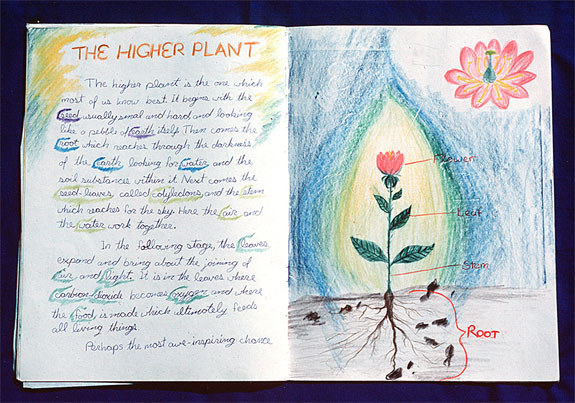 THE HIGHER PLANT
The higher planet is the one which
most of us know best. It begins with the
seed usually small and hard and looking
like a pebble of earth itself. Then comes the
root which reaches through the darkness
of the earth looking for water and the
soil substances within it. Next comes the
seed-leaves, called cotyledons, and the stem
which reaches for the sky. Here the air and
the water work together.
In the following stage, the leaves
expand and bring about the joining of
air and light. It is in the leaves where
carbon-dioxide becomes oxygen and where
the food is made which ultimately feeds
all living things.
Perhaps the most awe-inspiring chance
Flower
Leaf
Stem
ROOT